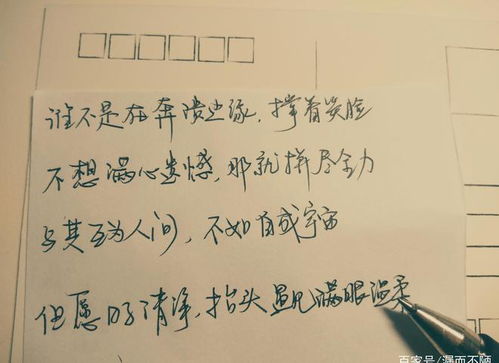 谁不是在奔溃边缘,撑着笑脸
不想满心遗憾,那就拼尽全力
与其互为人间,不如自成宇宙
但愿日子清净,抬头遇见满眼温柔
百家号/漏而不陋